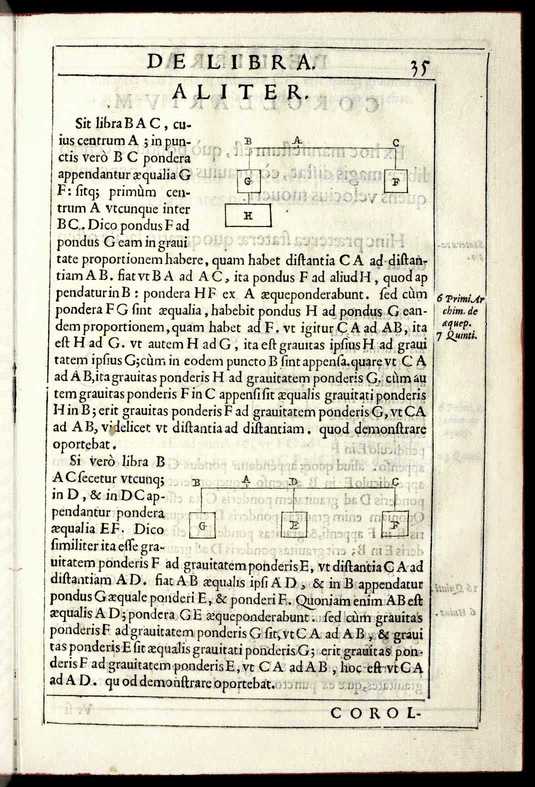 DE LIBRA. 35
ALITER.
Sit libra B A C, cu-
ius centrum A; in pun-
ctis verò B C pondera
appendantur æqualia G
F: sitq; primùm cen-
trum A vtcunque inter
BC. Dico pondus F ad
pondus G eam in graui
tate proportionem habere, quam habet distantia C A ad distan-
tiam A B. fiat vt B A ad A C, ita pondus F ad aliud H, quod ap
pendatur in B: pondera H F ex A æqueponderabunt. sed cùm
pondera F G sint æqualia, habebit pondus H ad pondus G ean-
dem proportionem, quam habet ad F. vt igitur C A ad A B, ita
est H ad G. vt autem H ad G, ita est grauitas ipsius H ad graui
tatem ipsius G; cùm in eodem puncto B sint appensa. quare vt C A
ad A B, ita grauitas ponderis H ad grauitatem ponderis G. cùm au
tem grauitas ponderis F in C appensi sit æqualis grauitati ponderis
H in B; erit grauitas ponderis F ad grauitatem ponderis G, vt C A
ad A B, videlicet vt distantia ad distantiam. quod demonstrare
oportebat.
B A C
G F
H
6 Primi Ar
chim. de
aequep.
7 Quinti.
Si verò libra B
A C secetur vtcunq;
in D, & in D C ap-
pendantur pondera
æqualia E F. Dico
similiter ita esse gra-
uitatem ponderis F ad grauitatem ponderis E, vt distantia C A ad
distantiam A D. fiat A B æqualis ipsi A D, & in B appendatur
pondus G æquale ponderi E, & ponderi F. Quoniam enim A B est
æqualis A D; pondera G E æqueponderabunt. sed cùm grauitas
ponderis F ad grauitatem ponderis G sit, vt C A ad A B, & graui
tas ponderis E sit æqualis grauitati ponderis G; erit grauitas pon-
deris F ad grauitatem ponderis E, vt C A ad A B, hoc est vt C A
ad A D. quod demonstrare oportebat.
B A D C
G E F
COROL-